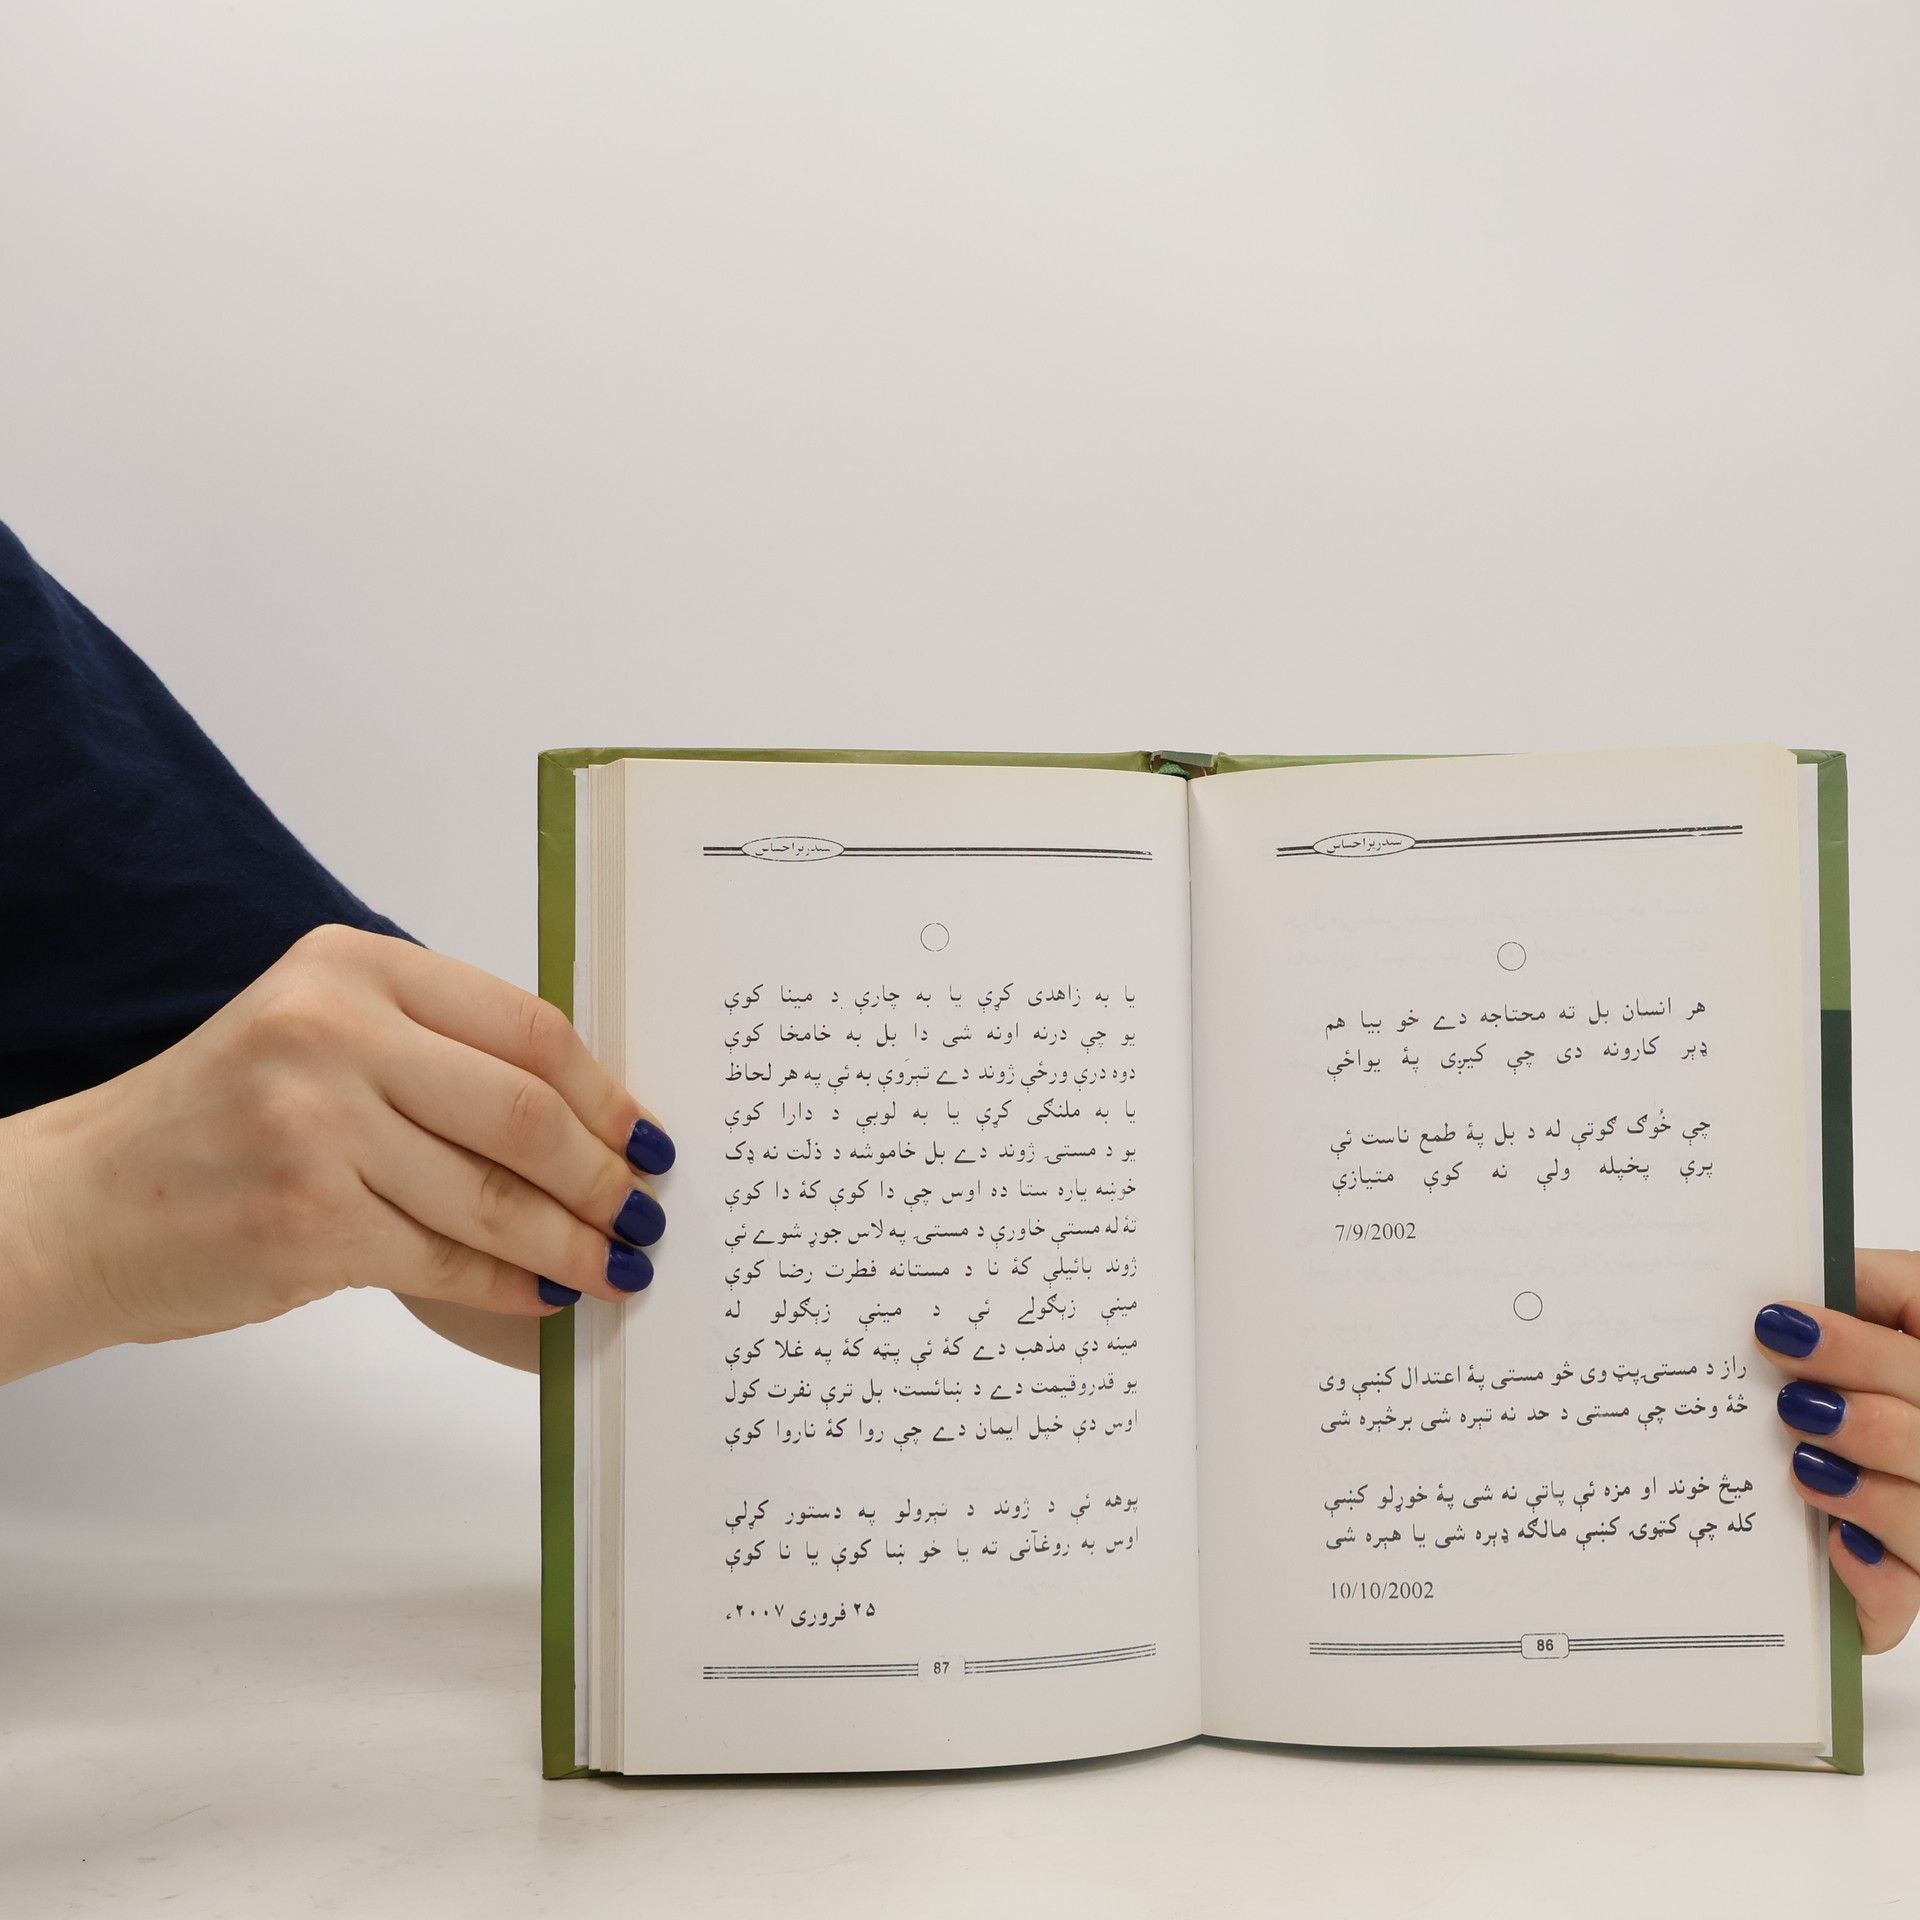 سندریز احساس
هر انسان بل ته محتاجه دے خو بیا هم
ډېر کارونه دی چې کیږی پۀ یواځې
چې خُوګ ګوتې له د بل پۀ طمع ناست ئې
پرې پخپله ولې نه کوې متیازې
7/9/2002
راز د مستۍ پټ وی څو مستی پۀ اعتدال کښې وی
څۀ وخت چې مستی د حد نه تېره شی برڅېره شی
هیڅ خوند او مزه ئې پاتې نه شی پۀ خوړلو کښې
کله چې کټوۍ کښې مالګه ډېره شی یا هېره شی
10/10/2002
86
سندریز احساس
یا به زاهدی کړې یا به چارې د مینا کوې
یو چې درنه اونه شی دا بل به خامخا کوې
دوه درې ورځې ژوند دے تېروَې به ئې په هر لحاظ
یا به ملنګی کړې یا به لوبې د دارا کوې
یو د مستۍ ژوند دے بل خاموشه د ذلّت نه ډک
خوښه یاره ستا ده اوس چې دا کوې کۀ دا کوې
تۀ له مستې خاورې د مستۍ په لاس جوړ شوے ئې
ژوند بائیلې کۀ نا د مستانه فطرت رضا کوې
مینې زېګولے ئې د مینې زېګولو له
مینه دې مذهب دے کۀ ئې پټه کۀ په غلا کوې
یو قدروقیمت دے د ښائست، بل ترې نفرت کول
اوس دې خپل ایمان دے چې روا کۀ ناروا کوې
پوهه ئې د ژوند د تېرولو په دستور کړلې
اوس به روغآنی ته یا خو ښا کوې یا نا کوې
۲۵ فروری ۲۰۰۷ء
87